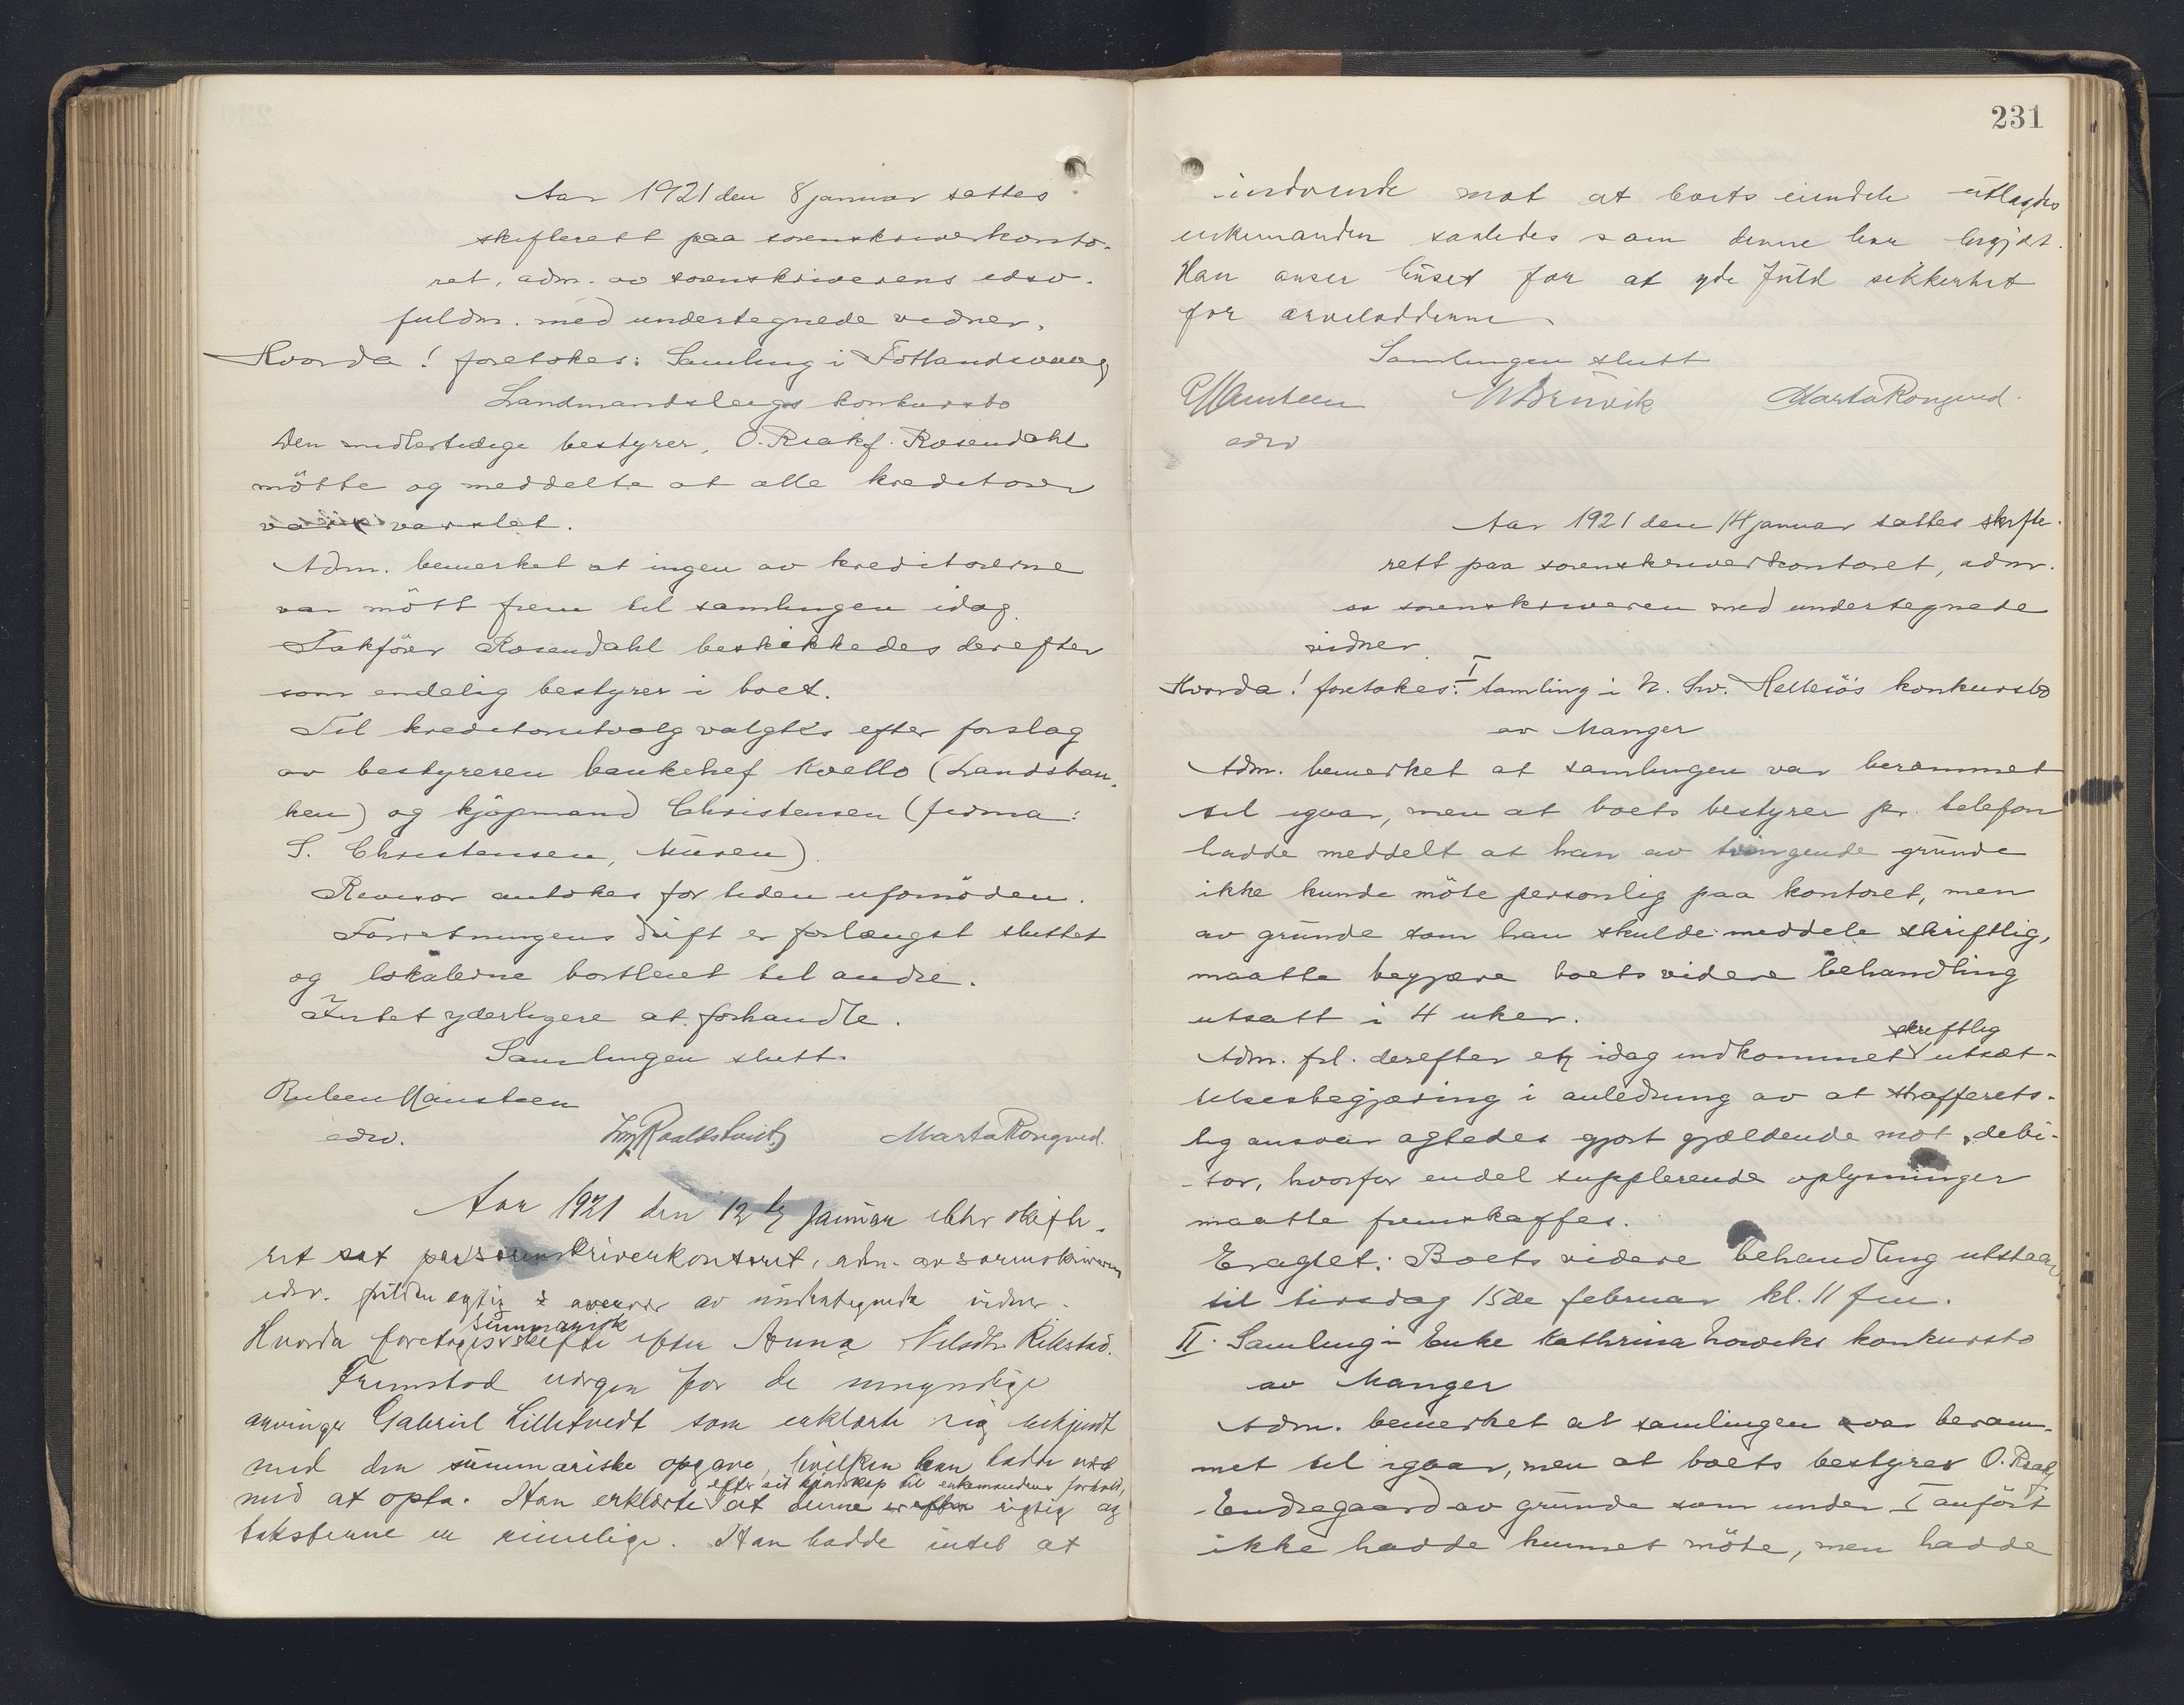 Aar 1921 den 8 januar sattes
skifterett paa sorenskriverkonto-
ret, adm. av sorenskriverens edsv.
fuldm. med undertegnede vidner.
Hvorda! foretokes: Samling i Fotlandsvaag
Landmandslags konkursbo
Den midlertidige bestyrer, O.R.sakf. Rosendahl
mötte og meddelte at alle kreditorer
var varslet.
Adm. bemerket at ingen av kreditorerne
var mött frem til samlingen idag.
Sakförer Rosendahl beskikkedes derefter
som endelig bestyrer i boet.
Til kreditorutvalg valgtes efter forslag
av bestyreren bankchef Kvello (Landsban-
ken) og kjöpmand Christensen (firma:
S. Christensen, Muren).
Revisor antokes for tiden ufornöden.
Forretningens drift er forlængst sluttet
og lokalerne bortleiet til andre.
Intet yderligere at forhandle.
Samlingen slutt.
Ruben Mansteen
edsv.
Marta Rongved.
Aar 1921 den 12te januar blev skifte-
ret sat paa sorenskriverkontoret, adm. av sorenskriverens
edsv. fuldmegtig i overvær av undertegnede vidner.
summarisk
Hvorda foretoges skifte efter Anna Nilsdtr. Rikstad.
Fremstod vergen for de umyndige
arvinger Gabriel Lilletvedt som erklærte sig bekjendt
med den summariske opgave, hvilken han hadde vært
efter sit kjendskap til enkemandens forhold,
med at opta. Han erklærte at denne er rigtig og
taksterne er rimelige. Han hadde intet at
231
indvende mot at boets eiendele utlagdes
enkemanden saaledes som denne har begjært.
Han anser huset for at yde fuld sikkerhet
for arveloddene.
Samlingen slutt
R Mansteen
edsv
M Bruvik
Marta Rongved.
Aar 1921 den 14 januar sattes skifte-
rett paa sorenskriverkontoret, adm.
av sorenskriveren med undertegnede
vidner.
Hvorda! foretokes: I Samling i N. Hellesös konkursbo
av Manger
Adm. bemerket at samlingen var berammet
til igaar, men at boets bestyrer pr. telefon
hadde meddelt at han av tvingende grunde
ikke kunde möte personlig paa kontoret, men
av grunde som han skulde meddele skriftlig,
maatte begjære boets videre behandling
utsatt i 4 uker.
skriftlig
Adm. frl. derefter en idag indkommet utsæt-
telsesbegjæring i anledning av at strafferets-
lig ansvar agtedes gjort gjældende mot debi-
tor, hvorfor endel supplerende oplysninger
maatte fremskaffes.
Eragtet: Boets videre behandling utstaar
til tirsdag 15de februar kl. 11 fm.
II. Samling i Enke Kathrina konkursbo
av Manger
Adm. bemerket at samlingen var beram-
met til igaar, men at boets bestyrer O.R.sakf.
Endregaard av grunde som under I anfört
ikke hadde kunnet möte, men hadde